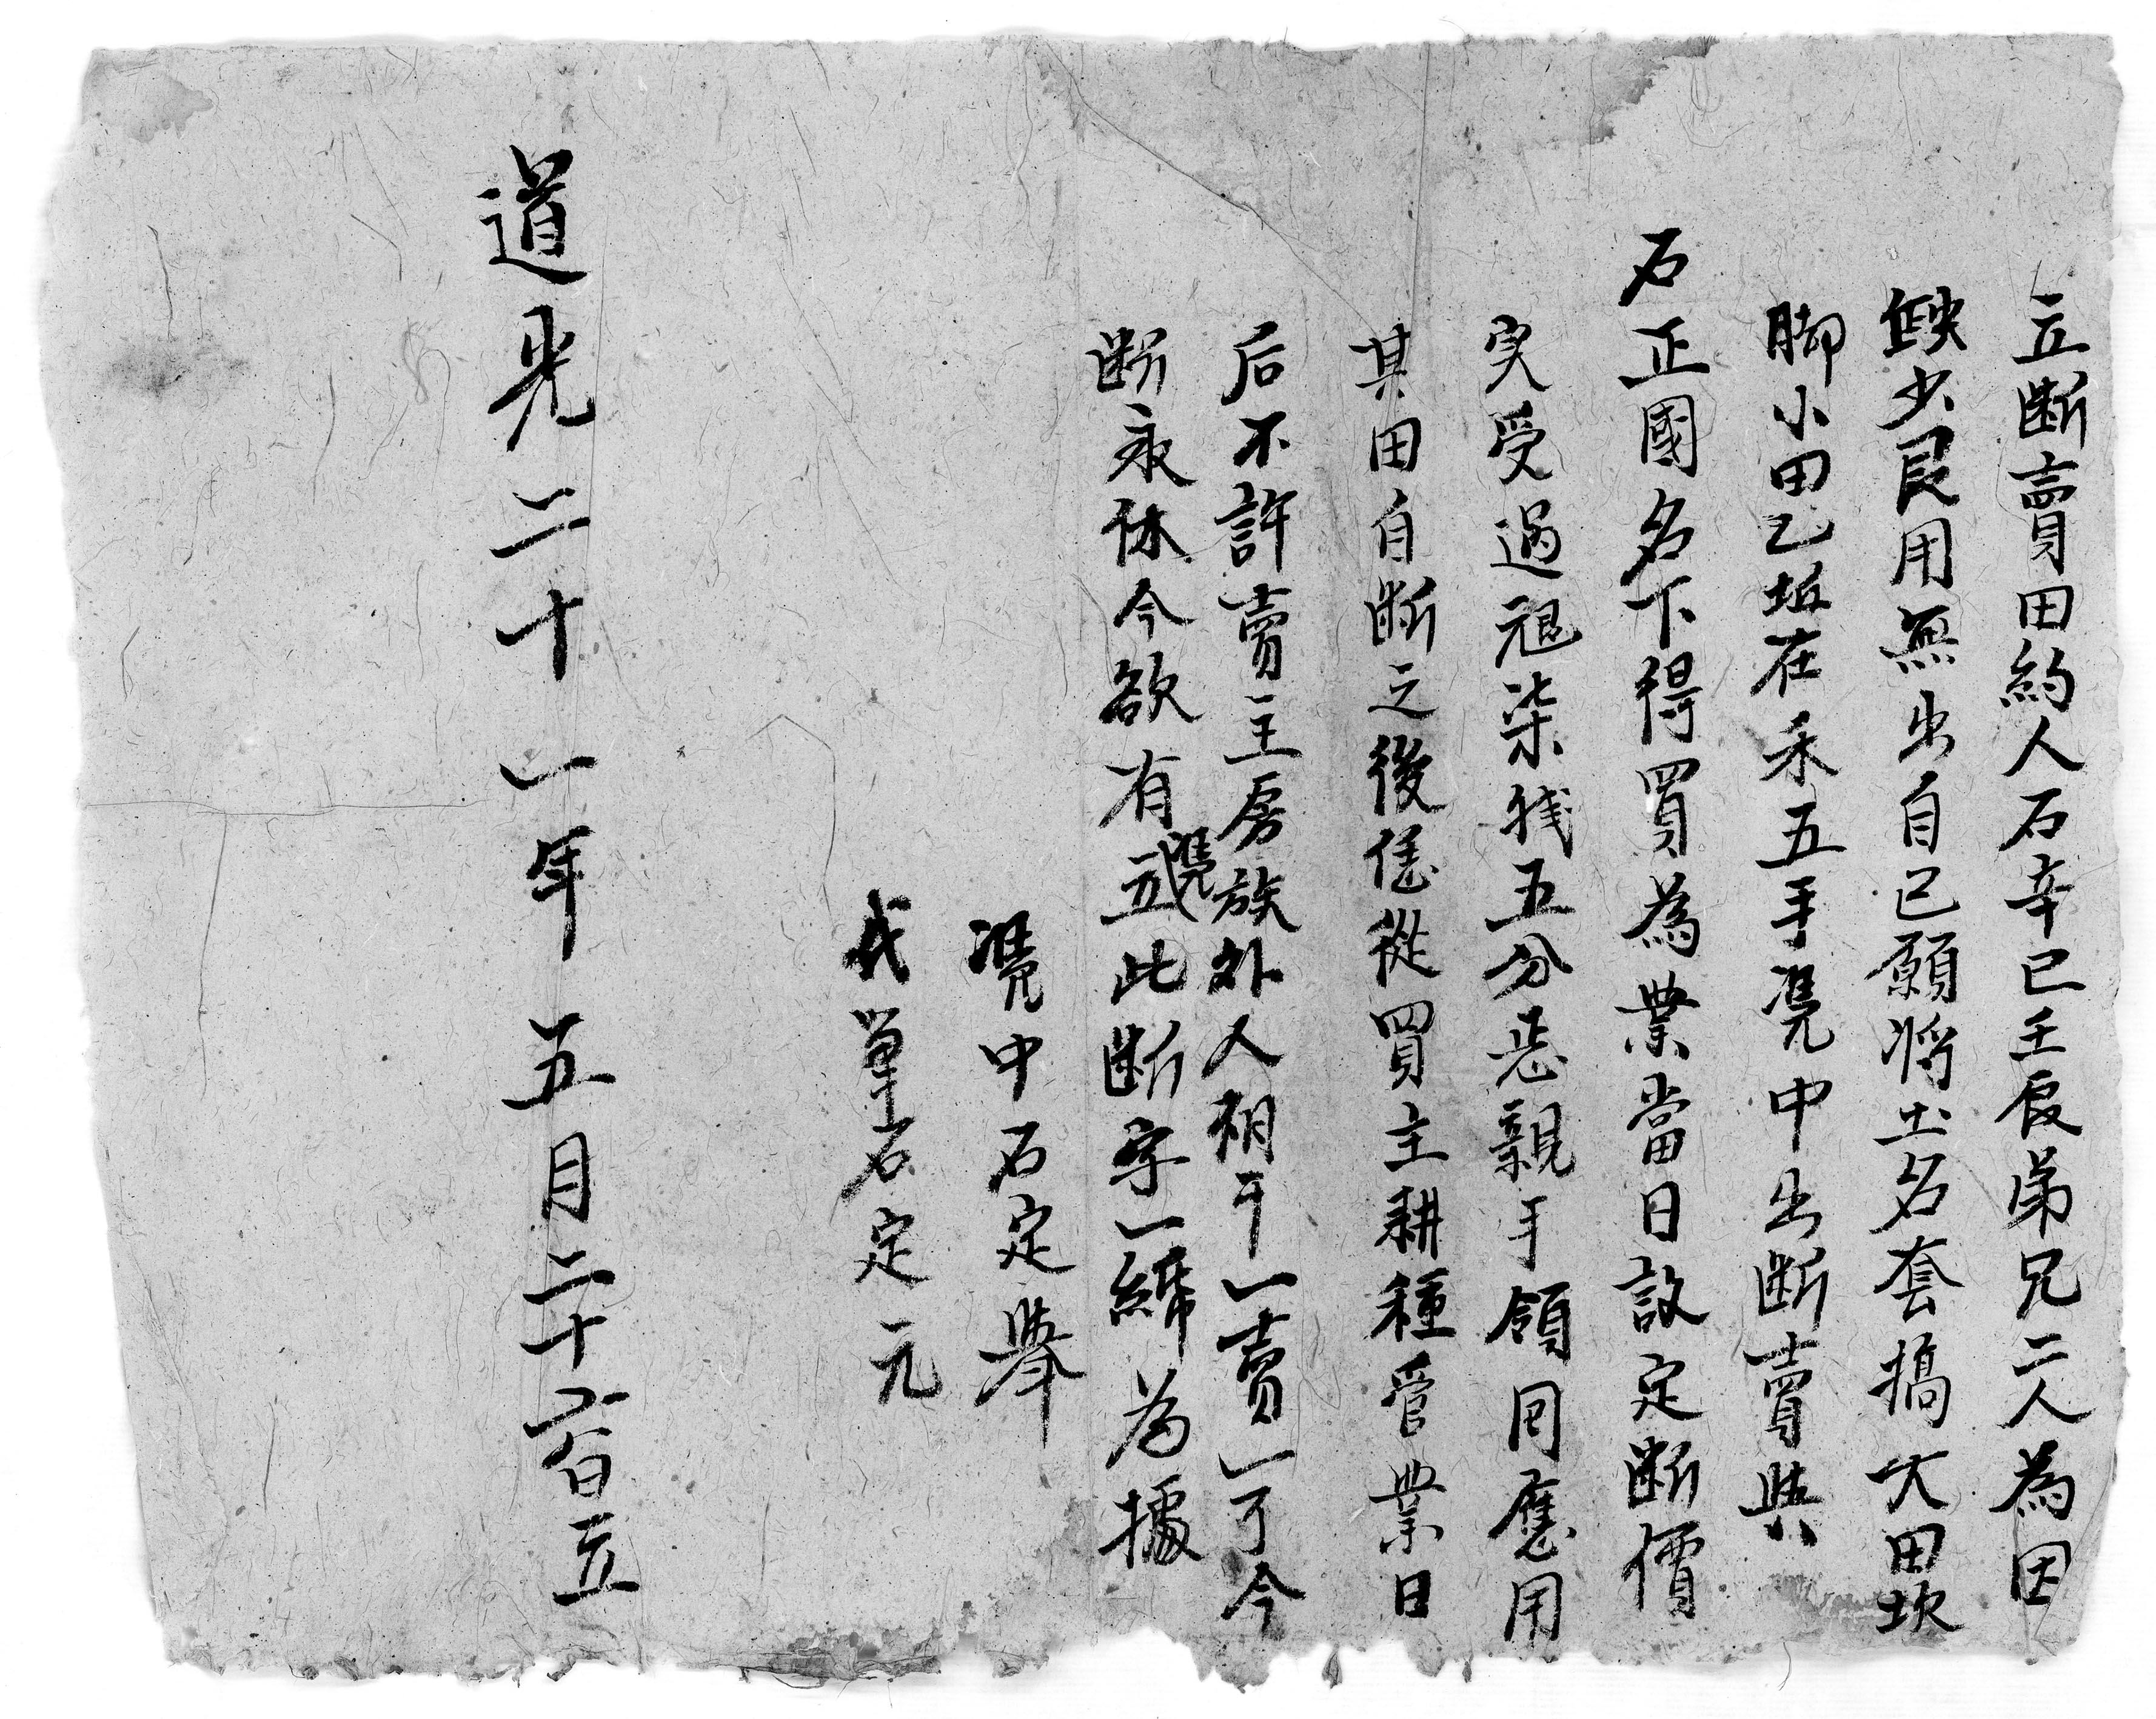 立断賣田約人石辛已壬辰弟兄二人為因
缺少艮用無出自己願将土名套搞大田坎
脚小田乙坵在禾五手凴中出断賣與
石正國名下得買為業當日議定断價
実受過艮柒錢五分悉親手領回應用
其田自断之後恁從買主耕種管業日
后不許賣主房族外人相干一賣一了今
断永休今欲有凴立此断字一紙為據
凴中石定舉
代筆石定元
道光二十一年五月二十六日立